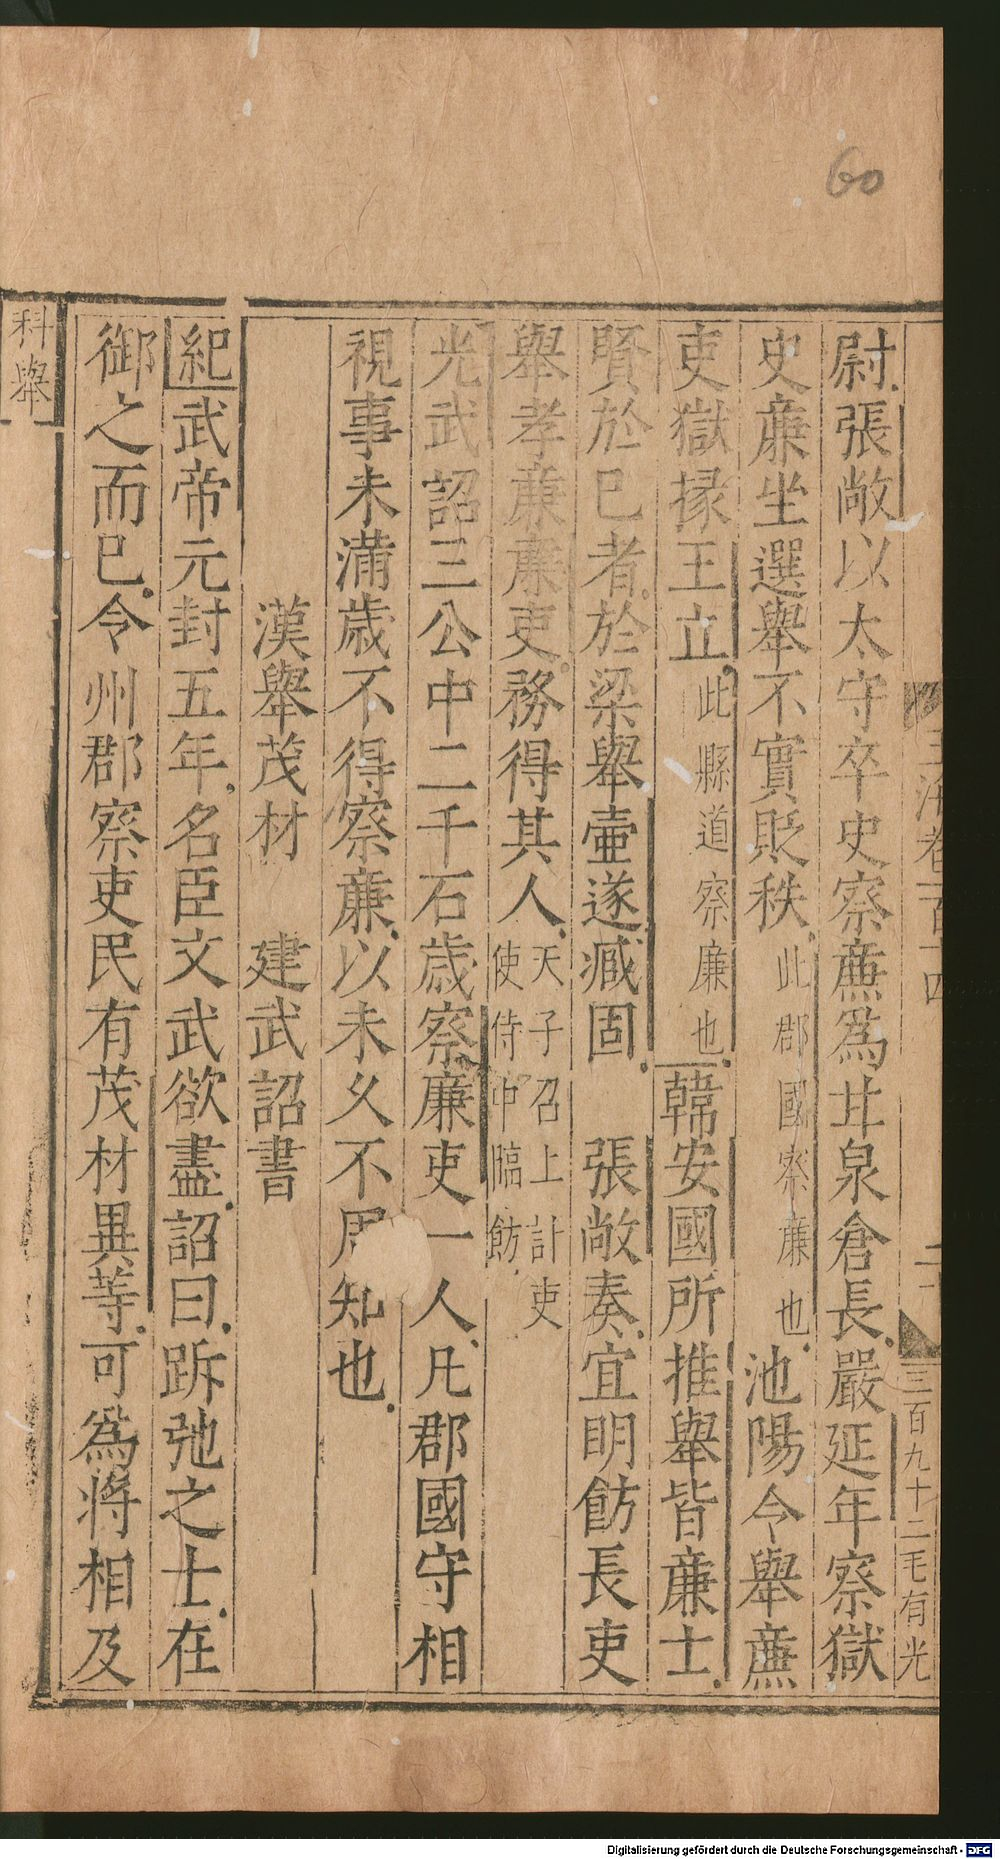 60
玉海卷一百十四
三百九十二毛有光
尉張敞以太守卒史察廉爲甘泉倉長嚴延年察獄
史廉坐選舉不實貶秩此郡國察廉也池陽令舉廉
吏獄掾王立此縣道察廉也韓安國所推舉皆廉士
賢於已者於梁舉壷遂臧固 張敞奏宜明飭長吏
舉孝廉廉吏務得其人天子召上計吏使侍中臨飭
光武詔三公中二千石歲察廉吏一人凡郡國守相
視事未滿歲不得察廉以未久不周知也
漢舉茂材 建武詔書
紀武帝元封五年名臣文武欲盡詔曰跅弛之士在
御之而已令州郡察吏民有茂材異等可爲将相及
科舉
Digitalisierung gefördert durch die Deutsche Forschungsgemeinschaft - DFG